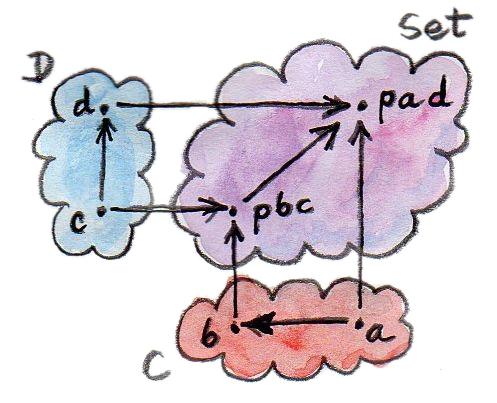 Set
D
d
pad
c
pbc
b
a
C